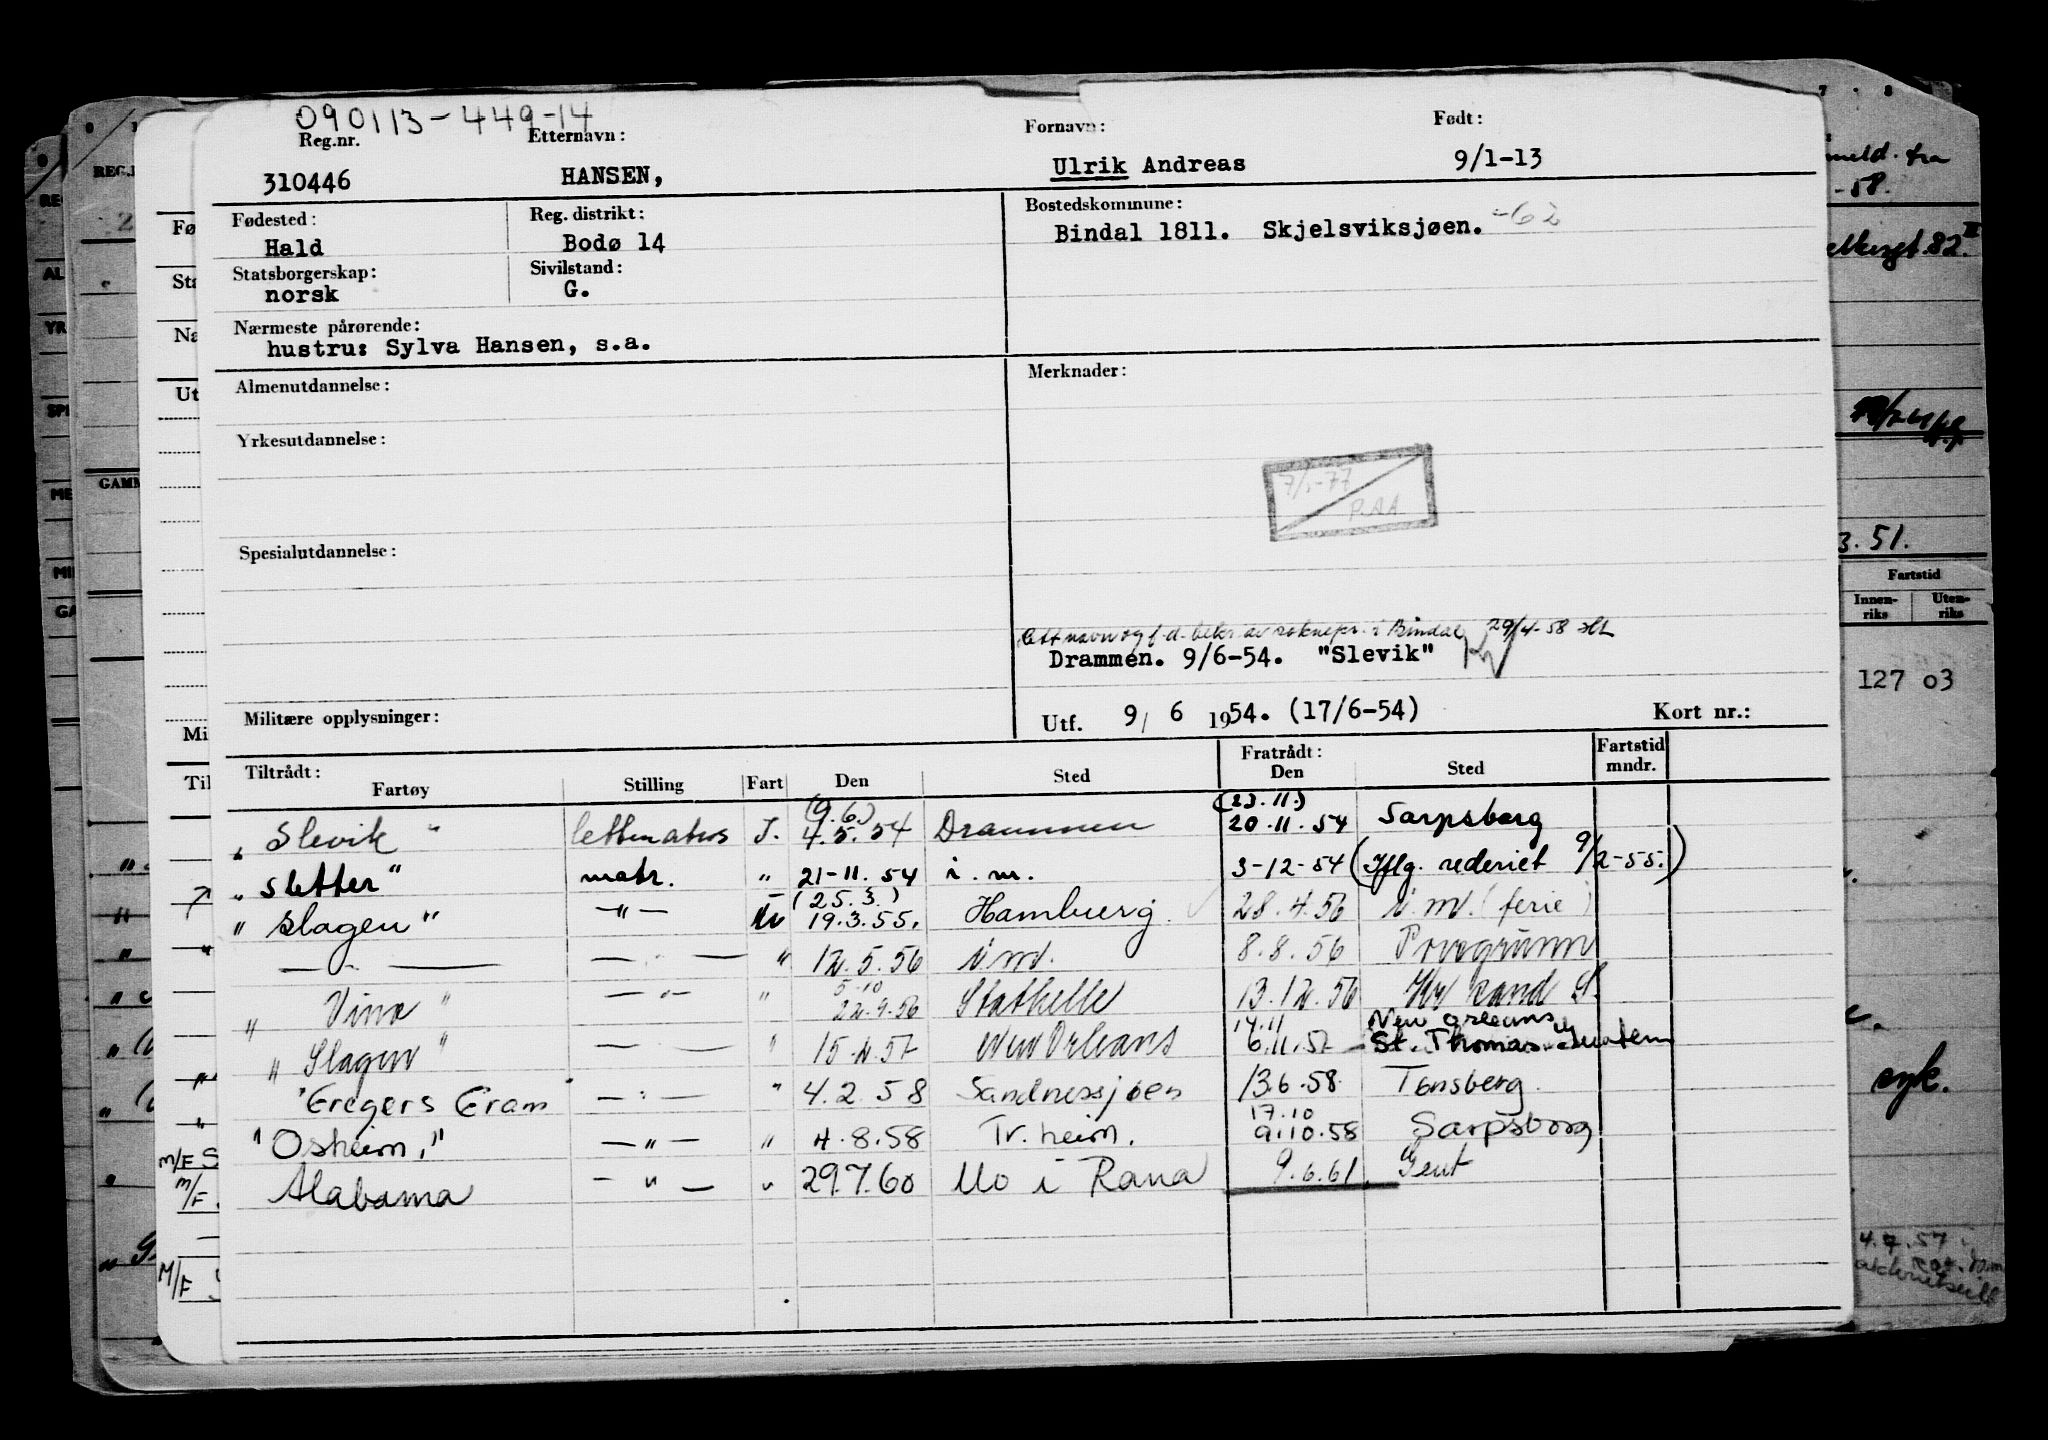 090113-449-14
Reg.nr. Etternavn: Fornavn: Født:
310446 HANSEN, Ulrik Andreas 9/1-13
Fødested: Reg. distrikt: Bostedskommune:
Hald Bodø 14 Bindal 1811. Skjelsviksjøen. -62
Statsborgerskap: Sivilstand:
norsk G.
Nærmeste pårørende:
hustru: Sylva Hansen, s.a.
Almenutdannelse: Merknader:
Yrkesutdannelse:
7/1-77
P.AA
Spesialutdannelse:
navn og f.d. bekr. av soknepr. i Bindal 29/4-58
Drammen. 9/6-54. "Slevik"
Militære opplysninger: Utf. 9/ 6 1954. (17/6-54) Kort nr.:
Tiltrådt: Fratrådt: Fartstid
Fartøy Stilling Fart Den Sted Den Sted mndr.
(9.6.) (23.11.)
"Slevik" lettmatros I. 4.5.54 Drammen 20.11.54 Sarpsborg
"Sletter" matr. " 21-11.54 i.m. 3-12-54 (Iflg. rederiet 9/2-55.)
(25.3.)
"Slagen" —"— U 19.3.55. Hamburg. 28.4.56 i.m. (ferie)
— " — — " — " 12.5.56 i.m. 8.8.56 Porsgrunn
5.10
"Vina" —"— " 22.9.56 Stathelle 13.12.56 Kr sand S.
14.11 New Orleans
"Slagen" — " — " 15.2.57 New Orleans 6.11.57 St. Thomas
"Gregers Gram —"— " 4.2.58 Sandnessjøen 13.6.58. Tønsberg.
17.10
"Osheim," —"— " 4.8.58 Tr.heim. 9.10.58 Sarpsborg
Alabama —"— " 29.7.60 Mo i Rana 9.6.61. Gent
REG.
GAMM
3.51.
Fartstid
Innen-
riks
Uten-
riks
127 03
syk.
4.7.57
M/F